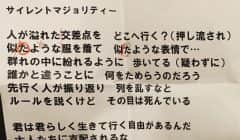 サイレントマジョリティー
人が溢れた交差点を　どこへ行く？（押し流され）
似たような服を着て　似たような表情で…
群れの中に紛れるように　歩いてる（疑わずに）
誰かと違うことに　何をためらうのだろう
先行く人が振り返り　列を乱すなと
ルールを説くけど　その目は死んでいる
君は君らしく生きて行く自由があるんだ